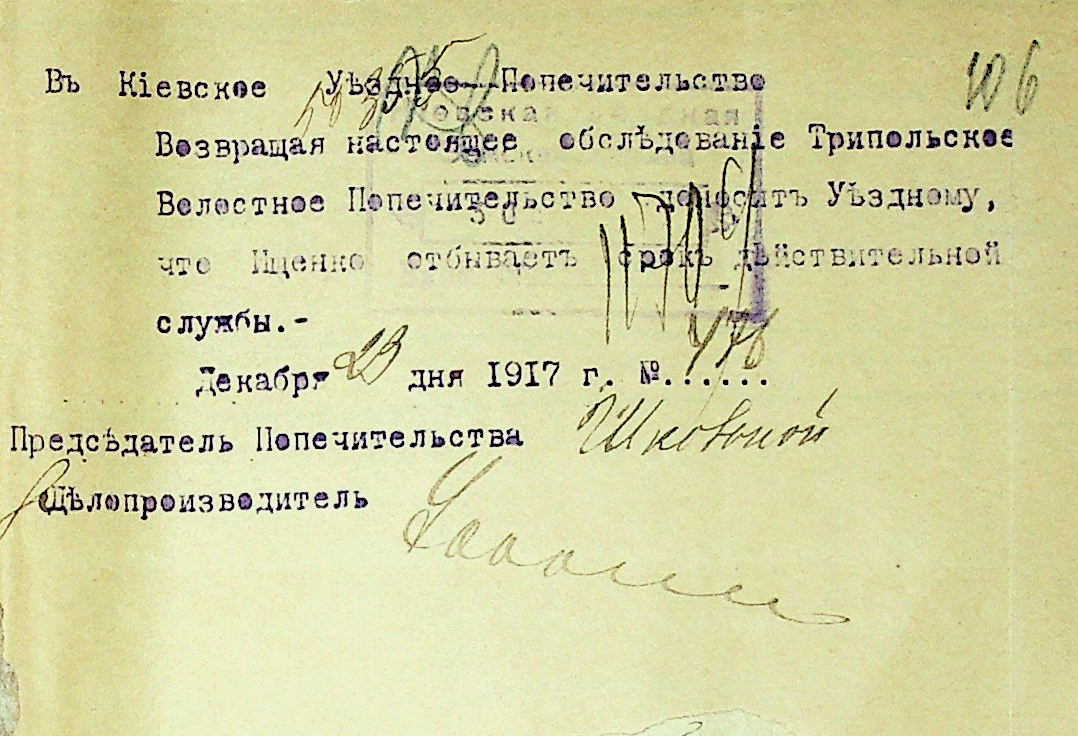 106
Въ Кіевское Уѣздное Попечительство
Возвращая настоящее обслѣдованіе Трипольское
Волостное Попечительство доноситъ Уѣздному,
что Ищенко отбываетъ срокъ дѣйствительной
службы.-
Декабря 23 дня 1917 г. №...... 476
Предсѣдатель Попечительства
Дѣлопроизводитель